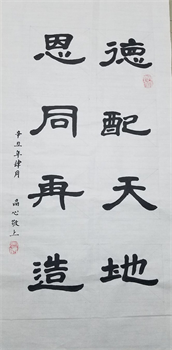 德配天地
恩同再造
辛丑年肆月
心敬上